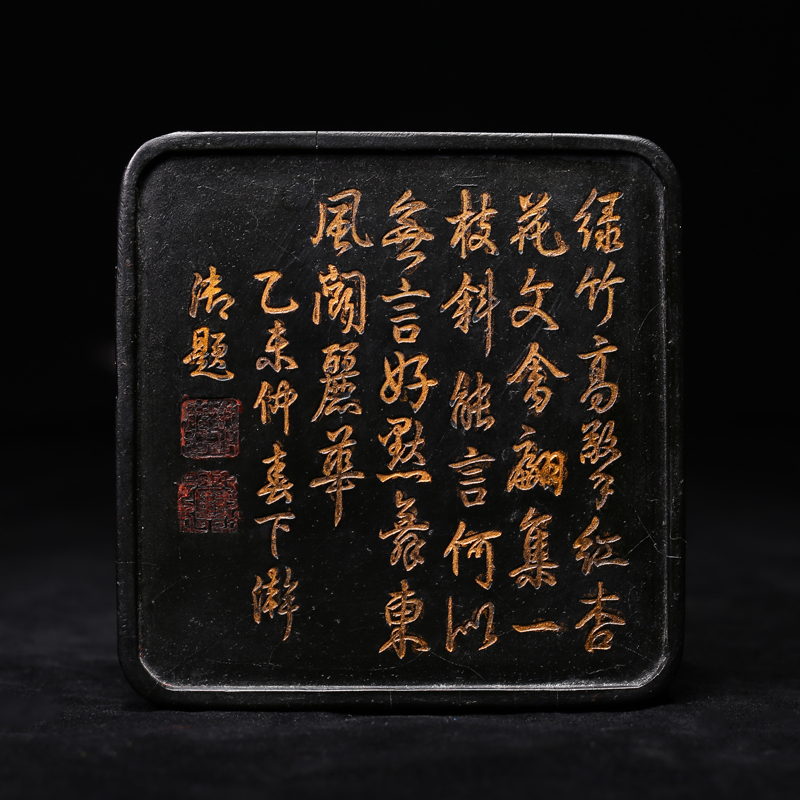 绿竹高红杏
花文禽翩集一
枝斜能言何似
無言好默舞東
風鬭麗華
乙未仲春下澣
御題